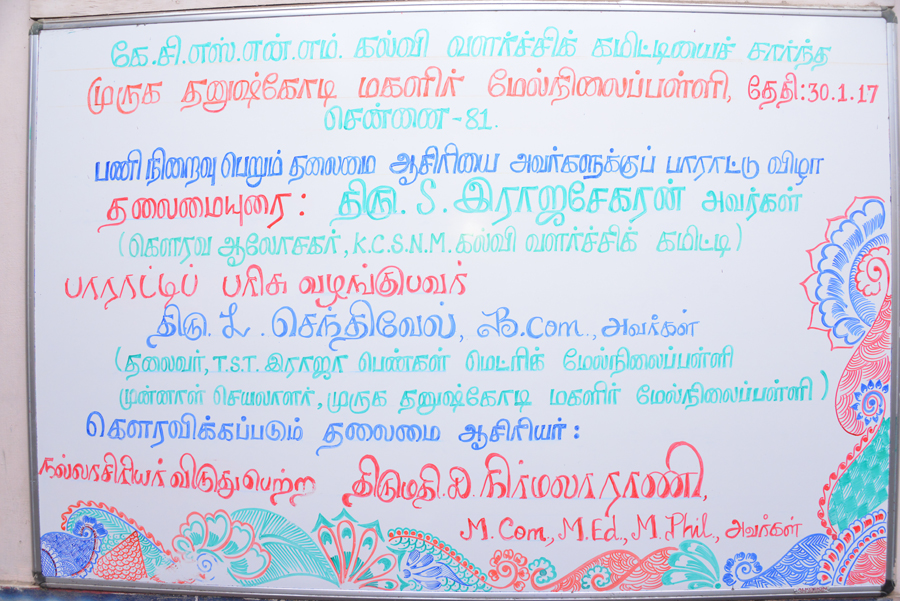 கே.சி.எஸ்.என்.எம். கல்வி வளர்ச்சிக் கமிட்டியைச் சார்ந்த
முருக தனுஷ்கோடி மகளிர் மேல்நிலைப்பள்ளி, தேதி:30.1.17
சென்னை-81.
பணி நிறைவு பெறும் தலைமை ஆசிரியை அவர்களுக்குப் பாராட்டு விழா
தலைமையுரை: திரு. S. இராஜசேகரன் அவர்கள்
(கௌரவ ஆலோசகர், K.C.S.N.M. கல்வி வளர்ச்சிக் கமிட்டி)
பாராட்டிப் பரிசு வழங்குபவர்
திரு. L. செந்திவேல், B.Com., அவர்கள்
(தலைவர், T.S.T. இராஜா பெண்கள் மெட்ரிக் மேல்நிலைப்பள்ளி
முன்னாள் செயலாளர், முருக தனுஷ்கோடி மகளிர் மேல்நிலைப்பள்ளி)
கௌரவிக்கப்படும் தலைமை ஆசிரியர்:
நல்லாசிரியர் விடுது பெற்ற திருமதி. D. நிர்மலா ராணி,
M.Com., M.Ed., M.Phil., அவர்கள்